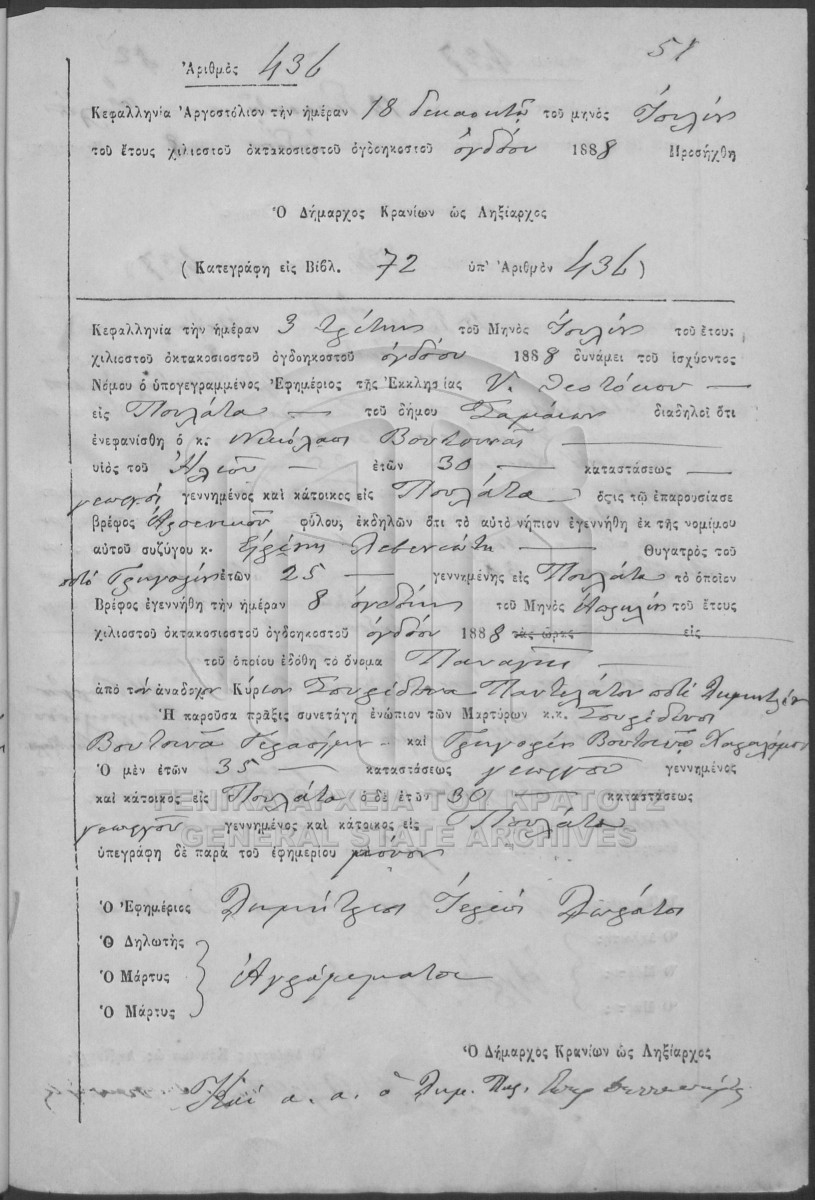 51
Ἀριθμὸς 436
Κεφαλληνία Ἀργοστόλιον τὴν ἡμέραν 18 δεκαοκτὼ τοῦ μηνὸς Ἰουλίου
τοῦ ἔτους χιλιοστοῦ ὀκτακοσιοστοῦ ὀγδοηκοστοῦ ὀγδόου 1888 Προσήχθη
Ὁ Δήμαρχος Κρανίων ὡς Ληξίαρχος
(Κατεγράφη εἰς Βιβλ. 72 ὑπ' Ἀριθμὸν 436)
Κεφαλληνία τὴν ἡμέραν 3 τρίτην τοῦ Μηνὸς Ἰουλίου τοῦ ἔτους
χιλιοστοῦ ὀκτακοσιοστοῦ ὀγδοηκοστοῦ ὀγδόου 1888 δυνάμει τοῦ ἰσχύοντος
Νόμου ὁ ὑπογεγραμμένος Ἐφημέριος τῆς Ἐκκλησίας Υ. Θεοτόκου
εἰς Πουλάτα τοῦ δήμου Σαμαίων διαδηλοῖ ὅτι
ἐνεφανίσθη ὁ κ. Νικόλαος Βουτσινᾶς
υἱὸς τοῦ Ἠλιοῦ ἐτῶν 30 καταστάσεως
γεωργὸς γεννημένος καὶ κάτοικος εἰς Πουλάτα ὅςτις τῷ ἐπαρουσίασε
βρέφος Ἀρσενικοῦ φύλου, ἐκδηλῶν ὅτι τὸ αὐτὸ νήπιον ἐγεννήθη ἐκ τῆς νομίμου
αὐτοῦ συζύγου κ. Εἰρήνης Λεβεντάτη Θυγατρὸς τοῦ
ποτὲ Γρηγορίου ἐτῶν 25 γεννημένης εἰς Πουλάτα τὸ ὁποῖον
Βρέφος ἐγεννήθη τὴν ἡμέραν 8 ὀγδόην τοῦ Μηνὸς Ἀπριλίου τοῦ ἔτους
χιλιοστοῦ ὀκτακοσιοστοῦ ὀγδοηκοστοῦ ὀγδόου 1888 τὰς ὥρας εἰς
τοῦ ὁποίου ἐδόθη τὸ ὄνομα Παναγῆς
ἀπὸ τὸν ἀνάδοχον Κύριον Σπυρίδωνα Παντελάτον ποτὲ Δημητρίου
Ἡ παροῦσα πρᾶξις συνετάγη ἐνώπιον τῶν Μαρτύρων κ.κ. Σπυρίδωνος
Βουτσινᾶ Γερασίμου καὶ Γρηγορίου Βουτσινᾶ Χαραλάμπου
Ὁ μὲν ἐτῶν 35 καταστάσεως γεωργοῦ γεννημένος
καὶ κάτοικος εἰς Πουλάτα ὁ δὲ ἐτῶν 30 καταστάσεως
γεωργοῦ γεννημένος καὶ κάτοικος εἰς Πουλάτα
ὑπεγράφη δὲ παρὰ τοῦ ἐφημερίου μόνον
ΓΕΝΙΚΑ ΑΡΧΕΙΑ ΤΟΥ ΚΡΑΤΟΥΣ
GENERAL STATE ARCHIVES
Ὁ Ἐφημέριος Δημήτριος Ἱερεὺς
Ὁ Δηλωτὴς
Ὁ Μάρτυς Ἀγράμματοι
Ὁ Μάρτυς
Ὁ Δήμαρχος Κρανίων ὡς Ληξίαρχος
Καὶ α. α. ὁ Δημ. Παρ.